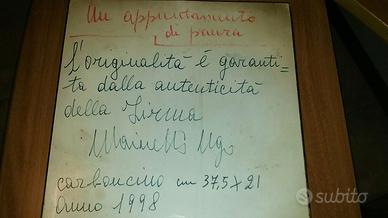 Un appuntamento
di paura
l'originalità è garanti=
ta dalla autenticità
della firma
Mainetti Ugo
carboncino cm 37,5x21
Anno 1998
subito